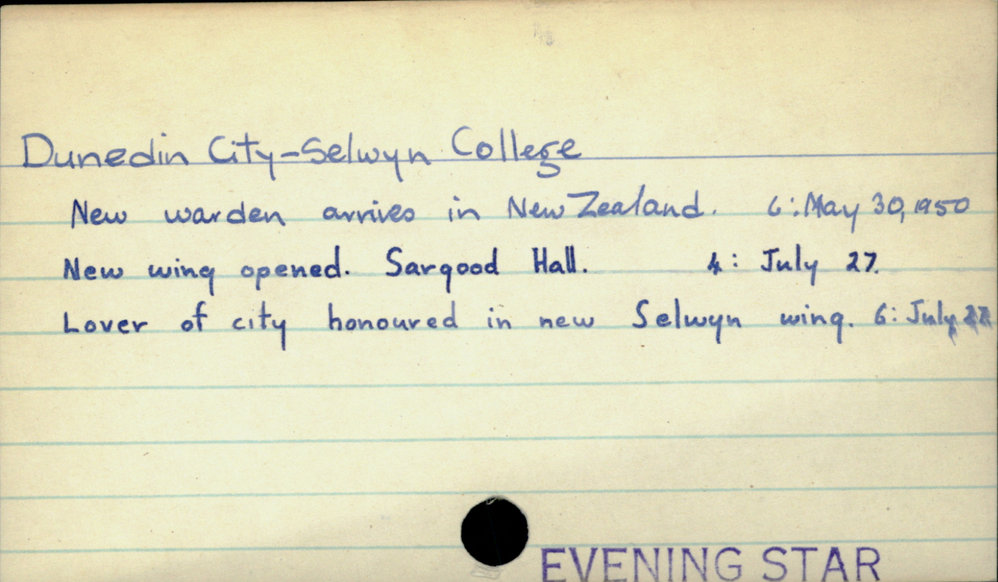 Dunedin City-Selwyn College
New warden arrives in New Zealand. 6: May 30, 1950
New wing opened. Sargood Hall. 4: July 27.
Lover of city honoured in new Selwyn wing. 6: July
EVENING STAR